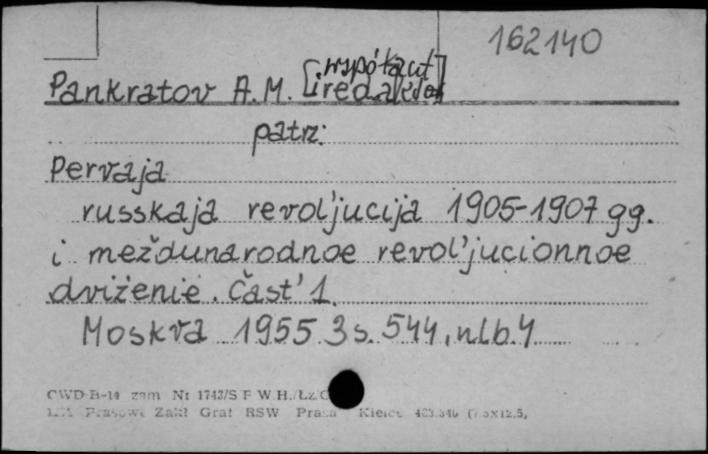 162140
Pankratov A.M. [współaut i redaktor]
patrz:
Pervaja
russkaja revol'jucija 1905-1907 gg.
i meždunarodnoe revol'jucionnoe
dviženie. Čast' 1.
Moskva 1955 3 s. 544, nlb. 4
CWD B-14 zam Nr 1743/S F W.H./Lz
Prasowe Zakł Graf RSW Prasa Kielce